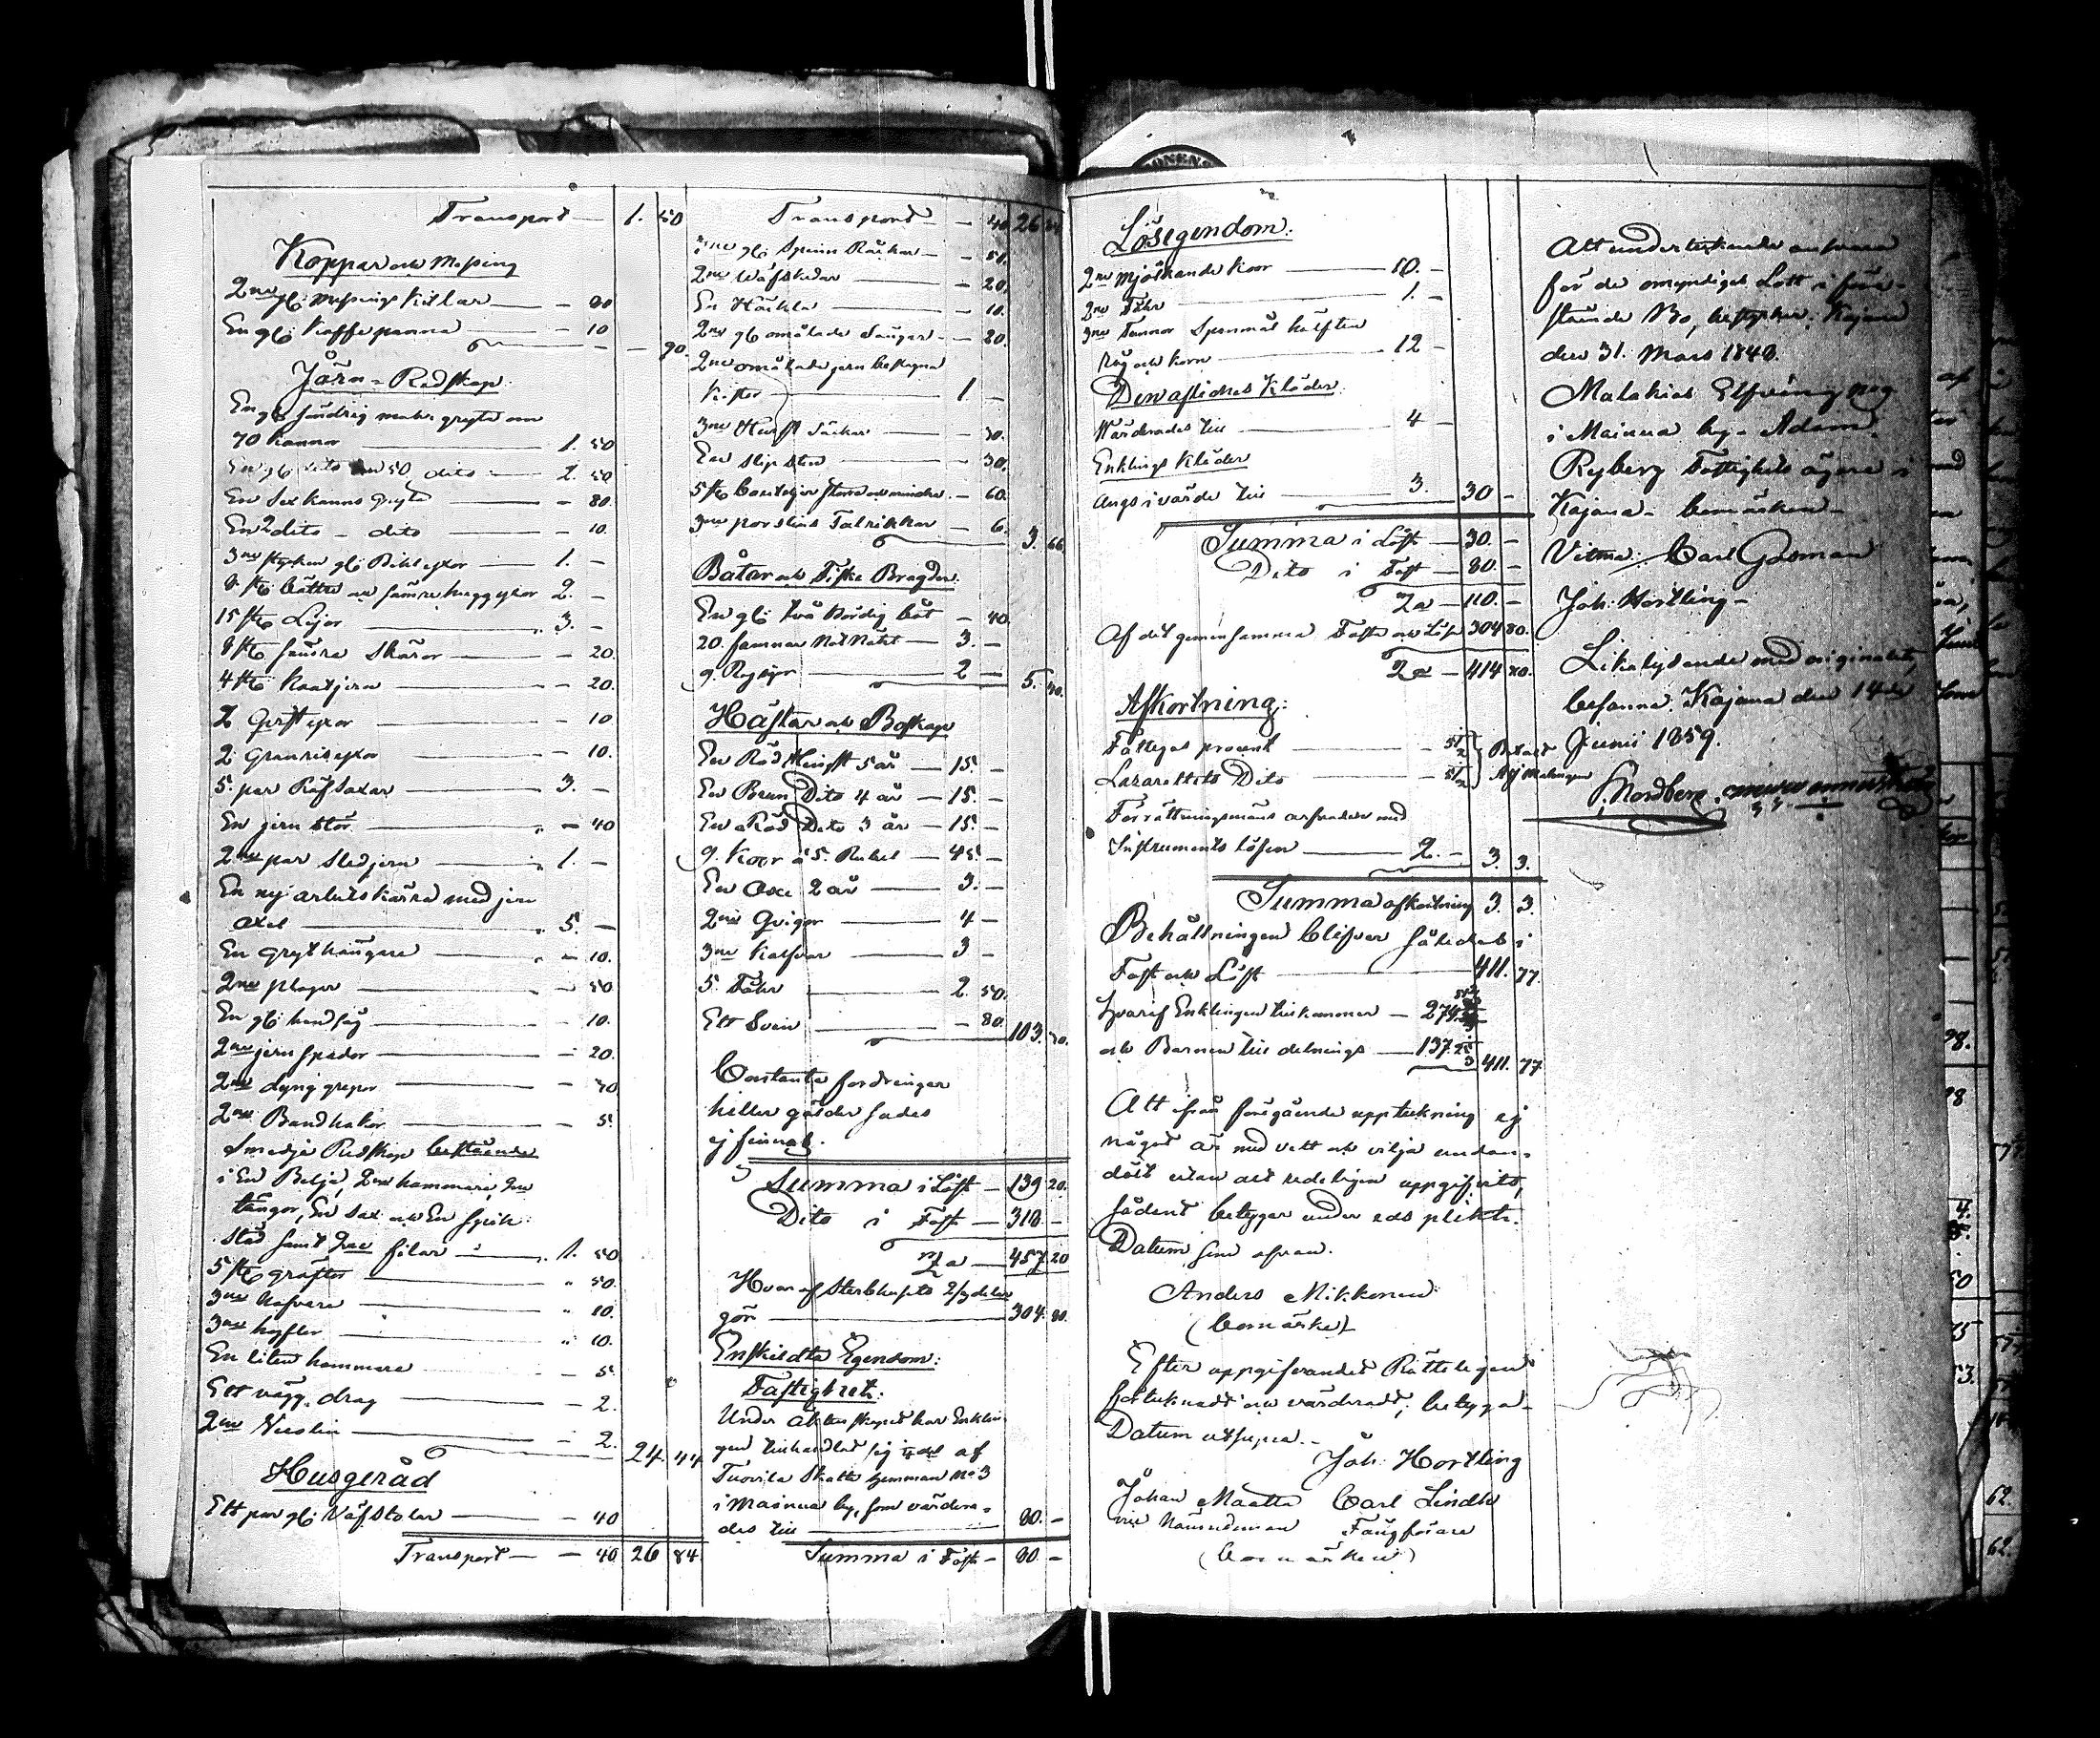 Transport — 1. 50
Koppar och Messing
2ne gl: Messings Kittlar — 80
En gl: Kaffepanna — 10
— 90.
Järn-Redskap:
En gl: söndrig malm gryta om
70 Kannor — 1. 50
En gl: dito om 50 dito — 1. 50
En Sex Kanns gryta — 80.
En 2 dito - dito — 10.
3ne stycken gl: Bihlyxor — 1. —
8 st: bättre och sämre huggyxor 2. —
15 st: Lijor — 3. —
8 st: sämre Skäror — 20.
4 st: — 20.
2 yxor — 10
2 yxor — 10.
5. par Räfsaxar — 3. —
En jern stör — 40
2ne par Sledjern — 1. —
En ny arbetskärra med jern
axel — 5. —
En Grythängare — 10.
2ne plogar — 50
En gl: handsåg — 10.
2ne jern spador — 20.
2ne dyng grepor — 40
2ne Bandhakor — 5.
Smedje Redskap bestående
i En Belja, 2ne hammare, 2ne
tänger, En Sax och En
Städ samt 2ne filar — 1. 50
5 st: gräftor — 50.
3ne Nafvare — 10.
3ne hyflor — 10.
En liten hammare — 5.
Ett vägg. drag — 2.
2ne — 2.
24. 44
Husgeråd
Ett par gl: Väfstolar — 40
Transport — 40 26 84
Transport — 40 26 84
gl: Spinn Råckar — 50.
2ne Wäfskedar — 20.
En Häckla — 10.
2ne gl: omålade Sängar — 20.
2ne omålade jern beslagna
Kistor — 1 —
3ne Säckar — 30.
En slipsten — 30.
5 st: Bouteljer större och mindre — 60.
3ne porslins Talrikkar — 6.
3. 66
Båtar och Fiske Bragder.
En gl: två bördig båt — 40.
20. famnar Not Nätet — 3. —
9. Rysjor — 2 —
5. 40.
Hästar och Boskap
En Röd Hingst 5 år — 15. —
En Brun Dito 4 år — 15. —
En Röd Dito 3 år — 15. —
9. Koor à 5. Rubel — 45. —
En Oxe 2 år — 3. —
2ne Qvigor — 4 —
3ne Kalfvar — 3 —
5. Fåhr — 2. 50.
Ett Svin — 80.
103. 30.
Contanta fordringar
heller gälder sades
ej finnas.
Summa i Löst — 139 20.
Dito i Fast — 318 —
Sa — 457 20
Hvar af Sterbhusets 2/3 delar
gör — 304. 80.
Enskildta Egendom:
Fastighet:
Under äktenskapet har Enklin-
gen tillhandlat sig del af
Tuovila Skatte hemman No 3
i Mainua by, som värdera-
des till — 80. —
Summa i Fast — 80. —
Lösegendom:
2ne Mjölkande Koor — 10. —
2ne Fåhr — 1. —
3ne Tunnor Spanmål hälften
Råg och Korn — 12 —
Den aflidnes Kläder:
Wärderades till — 4 —
Enklings Kläder
Angs i värde till — 3. 30 —
Summa i Löst — 30. —
Dito i Fast — 80. —
Sa — 110. —
Af det gemensamma Fasta och Lösa 304 80.
Sa — 414 80.
Afkortning:
Fattigas procent — 51/2
Lazarettets Dito — 51/2
Betalt
Förrättningsmäns arfvode med
Instruments lösen — 2. — 3. 3.
Summa afkortning 3. 3.
Behållningen blifver således i
Fast och Löst — 411. 77.
hvaraf Enklingen tillkommer — 274.
och Barnen till delnings — 137. 411. 77
Att ifrån föregående uppteckning ej
något är med vett och vilja undan-
dölt utan allt redeligen uppgifvits,
sådant betygar under eds plikt.
Datum som ofvan.
Anders Mikkonen
(bomärke)
Efter uppgifvandet Rätteligen
antecknadt och värderadt; betyga.
Datum utsupra.
Joh: Hortling
Johan Määttä Carl Lindh
vice Nämndeman Fångförare
(bomärken)
Att undertecknade ansvara
för de omyndigas Lott i före-
stående Bo, betyga: Kajana
den 31. Mars 1848.
Malakias Elfving
i Mainua by - Adam
Ryberg Fastighets ägare i
Kajana - bomärken -
Vittna: Carl Gåsman
Joh: Hortling -
Likalydande med originalet,
befanna. Kajana den 14de
Junii 1859.
Nordberg.